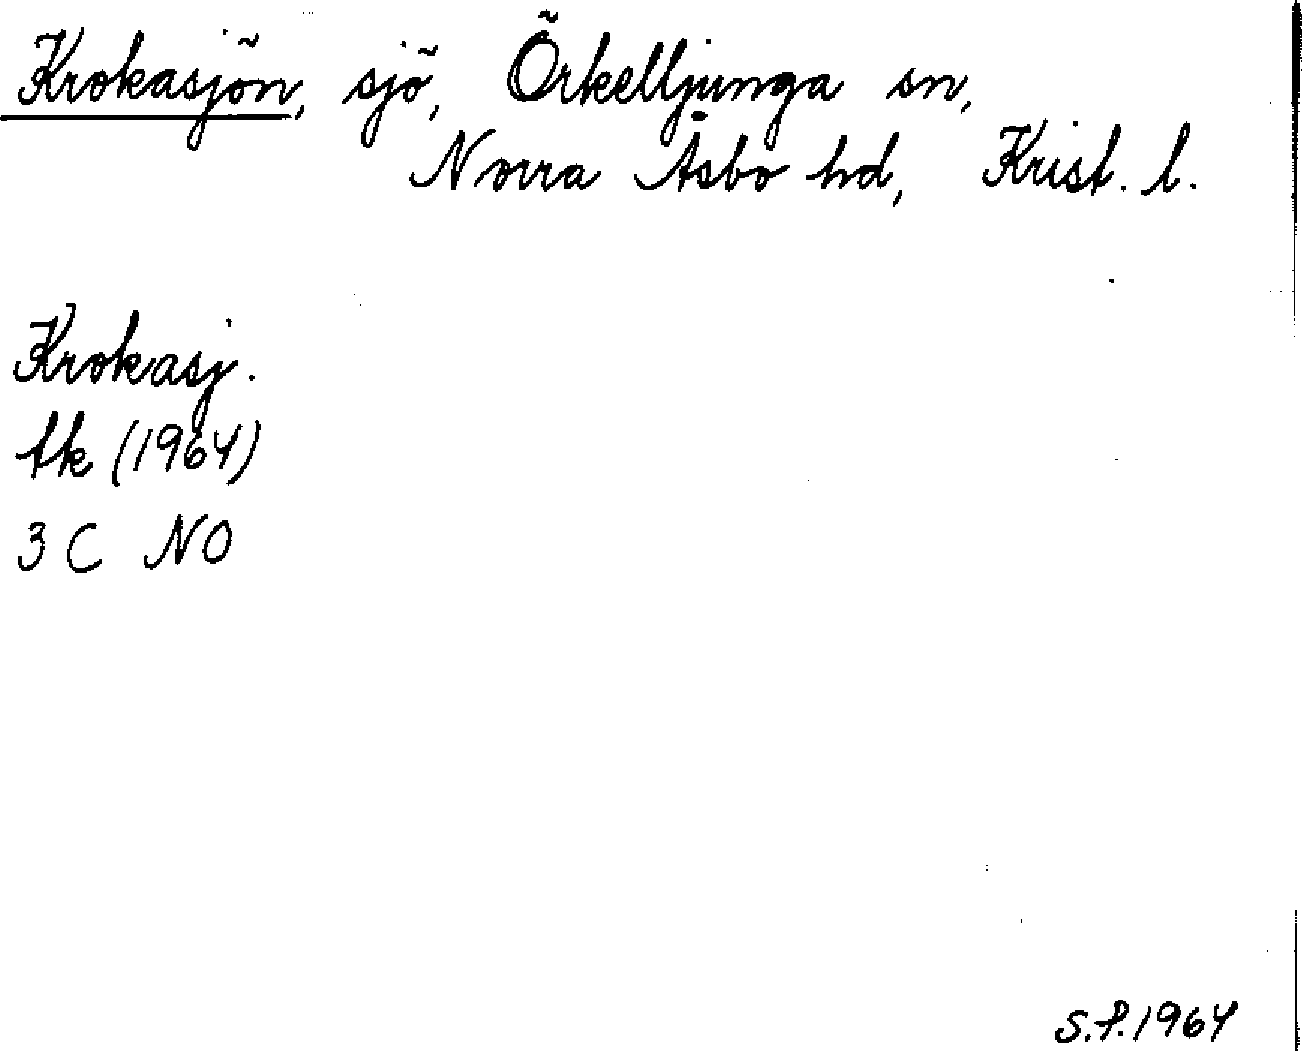 Krokasjön, sjö, Örkelljunga sn,
Norra Åsbo hd, Krist. l.
Krokasj.
tk (1964)
3 C NO
S.P. 1964